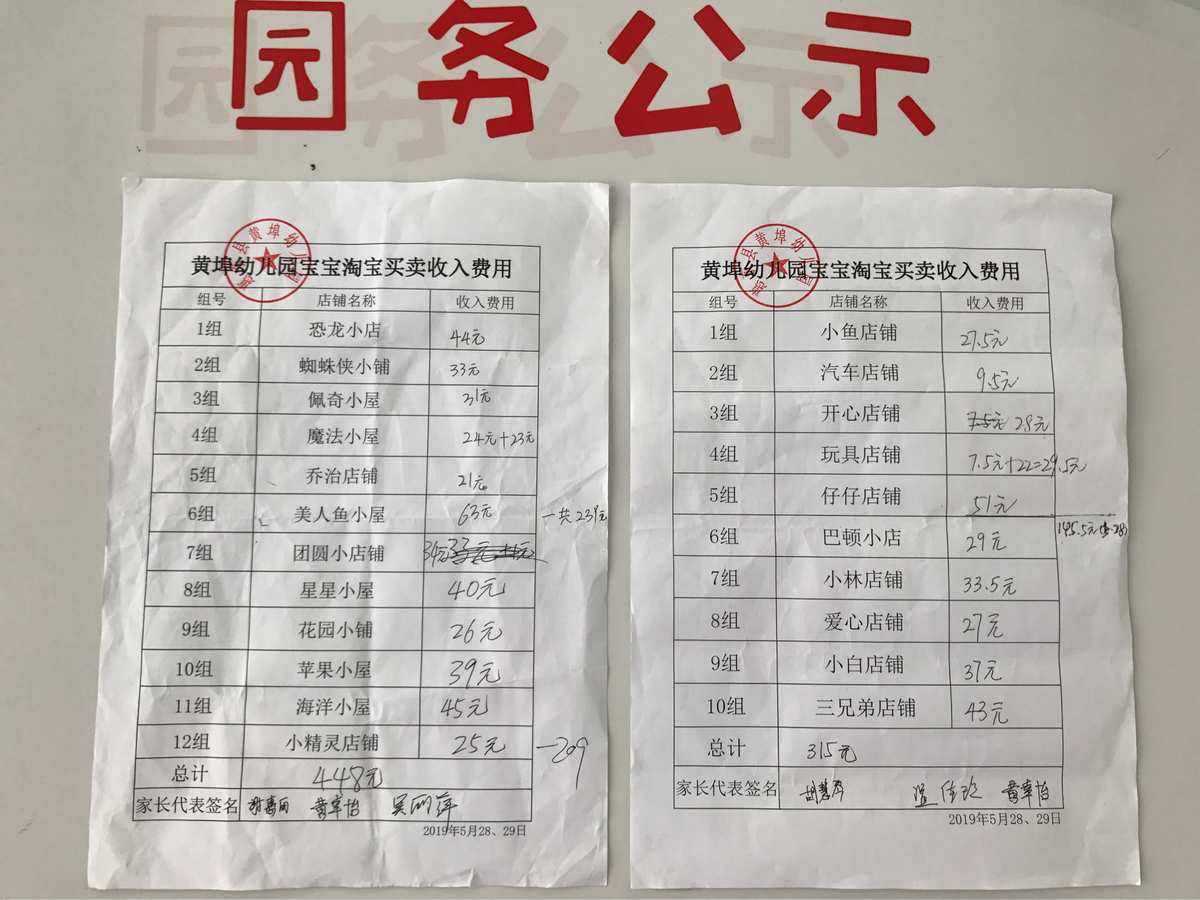 园务公示
黄埠幼儿园宝宝淘宝买卖收入费用
组号 店铺名称 收入费用
1组 恐龙小店 44元
2组 蜘蛛侠小铺 33元
3组 佩奇小屋 31元
4组 魔法小屋 24元+23元
5组 乔治店铺 21元
6组 美人鱼小屋 63元 一共239元
7组 团圆小店铺 34元
8组 星星小屋 40元
9组 花园小铺 26元
10组 苹果小屋 39元
11组 海洋小屋 45元
12组 小精灵店铺 25元 —209
总计 448元
家长代表签名 黄章怡 吴丽萍
2019年5月28、29日
黄埠幼儿园宝宝淘宝买卖收入费用
组号 店铺名称 收入费用
1组 小鱼店铺 27.5元
2组 汽车店铺 9.5元
3组 开心店铺 7.5元 28元
4组 玩具店铺 7.5元+22=29.5元
5组 仔仔店铺 51元
6组 巴顿小店 29元 145.5元
7组 小林店铺 33.5元
8组 爱心店铺 27元
9组 小白店铺 37元
10组 三兄弟店铺 43元
总计 315元
家长代表签名 胡慧琴 黄章怡
2019年5月28、29日